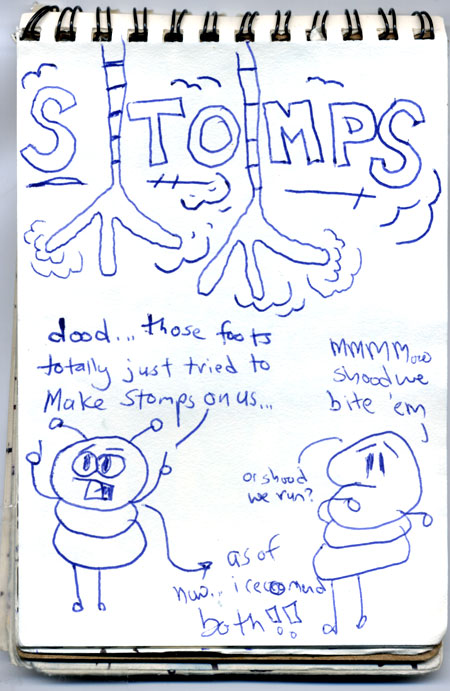 STOMPS
dood... those foots
totally just tried to
Make Stomps on us...
shood we
bite 'em
or shood
we run?
as of
now... i recomend
both!!